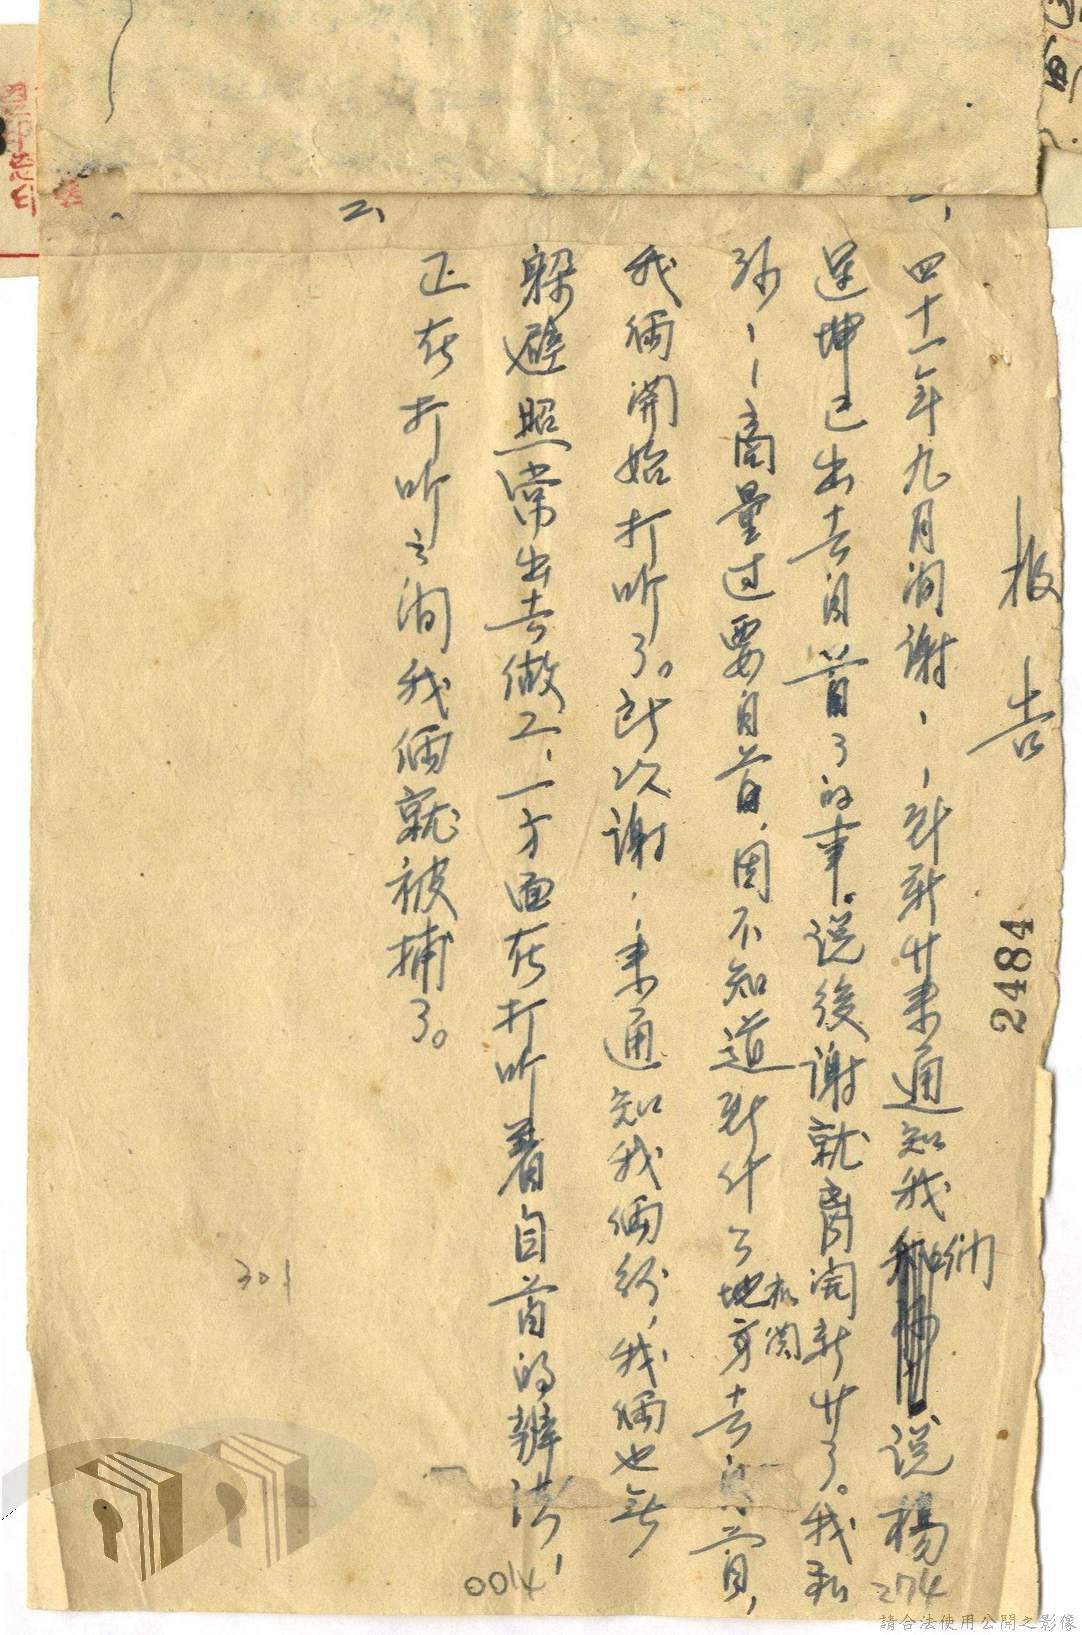 報告
一、四十一年九月間謝、、到新廿來通知我們說楊
逕坤已出去自首了的事。說後謝就離開新廿了。我和
孫、、商量过要自首,因不知道到什么地方机関去自首,
我倆開始打听了。此次謝、、來通知我倆後,我倆也無
躲避照常出去做工、一方面在打听着自首的辦法、
二、正在打听之間我倆就被捕了。
2484
274
301
0014
請合法使用公開之影像